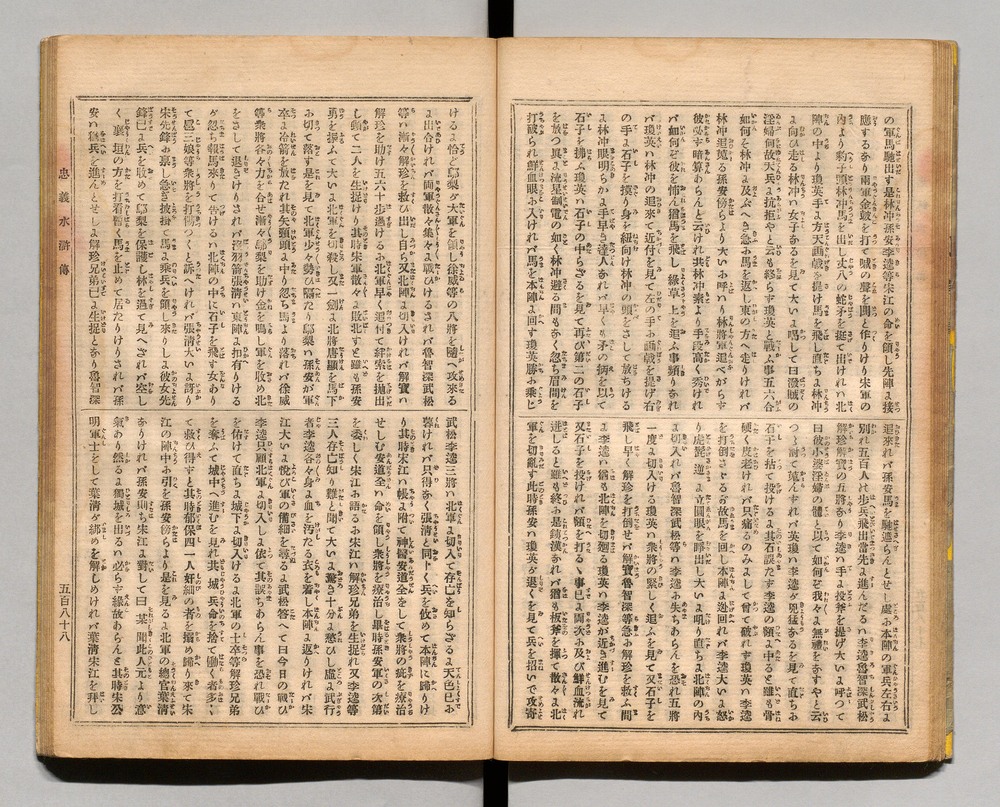 の軍馬馳出す是林冲孫安李逵等宋江の命を領し先陣に接
應するあり兩軍金鼓を打て喊の聲を間と作りけり宋軍の
内より豹子頭林冲馬を出し丈八の蛇矛を挺て出けれバ北
陣の中より瓊英手に方天画戟を提け馬を飛し直ちに林冲
に向ひ走る林冲ハ女子なるを見て大いに喝して曰潑賊の
淫婦何故天兵に抗拒やと云も終らず瓊英と戰ふ事五六合
如何そ林冲に及ぶへき忽ち馬を返し東の方へ走りけれバ
林冲追蒐る孫安傍らより大いに呼ハり林將軍追べからす
彼必す暗算あらんと云けれ共林冲素より手段高く秀けれ
バ如何ぞ彼を怖ん猶馬を飛し緑草上を追ふ事頻りなれ
バ瓊英ハ林冲の追來て近付を見て左の手に画戟を提げ右
の手に石子を摸り身を紐向け林冲の頭をさして放ちける
に林冲眼明らかに手早き達人なれバ早くも矛の柄を以て
石子を拂ふ瓊英ハ石子の中らさるを見て再び第二の石子
を放つ異に流星掣電の如く林冲避る間もなく忽ち眉間を
打破られ鮮血眼に入けれバ馬を本陣に回す瓊英勝に乘じ
追來れバ孫安馬を馳遮らんとせし處に本陣の軍兵左右に
別れ五百人は歩兵飛出當先に進んたるハ李逵魯智深武松
解珍解寶の五將なり李逵ハ手に投斧を提げ大いに呼って
曰彼小婆淫婦の體を以て如何ぞ我々に無禮をなすやと云
つヽ討て蒐んすれバ瓊英ハ李逵か兇猛なるを見て直ちに
石子を拈て投けるに其石誤たす李逵の額に中ると雖も骨
硬く皮老けれバ只痛るのみよして曽て破れず瓊英ハ李逵
を打倒さゞるなお故馬を回し本陣に迯回れバ李逵大いに怒
り虎髭逆に立圓眼を睜出し大いに吼り直ちに北陣の内
に切入れバ魯智深武松等ハ李逵に失ちあらんを恐れ五將
一度に切入ける瓊英ハ衆將の緊しく追ふを見て又石子を
飛し早く解珍を打倒せバ解寶魯智深等急に解珍を救ふ間
に李逵ハ猶も北陣を切廻る瓊英ハ李逵が近き進むを見て
又石子を投けれバ額を打るヽ事已に兩次に及び鮮血流れ
迸しると雖も終に是錚漢なれバ猶も板斧を揮て散々に北
軍を切亂す此時孫安ハ瓊英ヶ退くを見て兵を招いて攻寄
けるに恰ど鄔梨ヶ大軍を領し徐威等の八將を隨へ攻來る
に出合けれバ兩軍散々集々に戰ひけるされバ魯智深武松
等ハ漸々解珍を救ひ出し自ら又北陣に切入けれバ解寶ハ
解珍を助け五六十歩過けるに北軍早く追付て絆索を拋出
し頓て二人を生捉けり其時宋軍散々に敗北すと雖も孫安
勇を揮ふて大いに北軍を切殺し又一劔に北將唐顯を馬下
に切て落す是を見て北軍少々勢ひ屈たり鄔梨ハ孫安が軍
卒に冷箭を放たれ其矢頸項に中り忽ち馬より落れバ徐威
等衆將各々力を合せ漸々鄔梨を助け金を鳴し軍を收め北
をさして退きけりされバ沒羽箭張清ハ東陣に扣有りける
か忽ち報馬來りて告けるハ北陣の中に石子を飛す女あり
て扈三娘等衆將を打傷つくと訴へけれバ張清大いに訝り
宋先鋒に禀し急ぎ披挂て馬に乗兵を領し來りしに彼女先
鋒已に兵を收めて鄔梨を保護し林を過て見へされバ空し
く襄垣の方を打着暫く馬を止めて居たりけりされバ孫
安ハ猶兵を進んとせしに解珍兄弟已に生捉となり魯智深
武松李逵三將ハ北軍に切入て存亡を知らさるに天色已に
暮けれバ只得なく張清と同しく兵を收めて本陣に歸りけ
り其時宋江ハ帳に附て神醫安道全をして衆將の疵を療治
せしむ安道全ハ命を領し衆將を療治し畢時孫安軍の次第
を委しく宋江に語るに宋江ハ解珍兄弟を生捉れ又李逵等
三人存亡知り難と聞て大いに驚き十分に愁ひし處に武行
者李逵各々身に血を汚たる衣を着し本陣に返りけれバ宋
江大いに悦び軍の備細を尋るに武松答へて曰今日の戰ひ
李逵只顧北軍に切入しに依て其誤ちあらん事を恐れ戰ひ
を佑けて直ちに城下に切入けるに北軍の士卒等解珍兄弟
を奪ふて城中へ進むを見れ共城ハ兵命を捨て働く者多く
て救ひ得すと其時郁保四一人奸細の者を搦め歸り來て宋
江の陣中に引を孫安傍らより是を見るに北軍の總官葉清
なりけれバ孫安即ち宋江に對して曰某聞此人元より意
氣あり然るに獨城を出るハ必らす緣故あらんと其時宋公
明軍士をして葉清ヶ綁めを解しめけれバ葉清宋江を拝し
忠義水滸傳
五百八十八